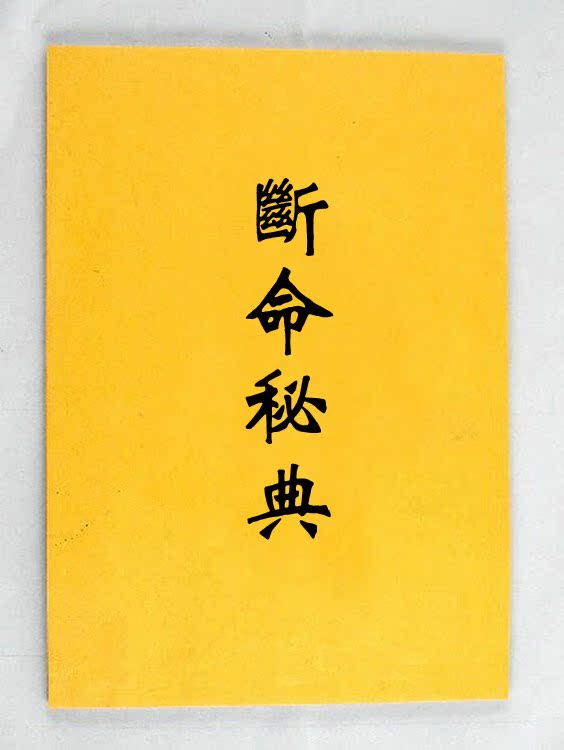 斷命秘典